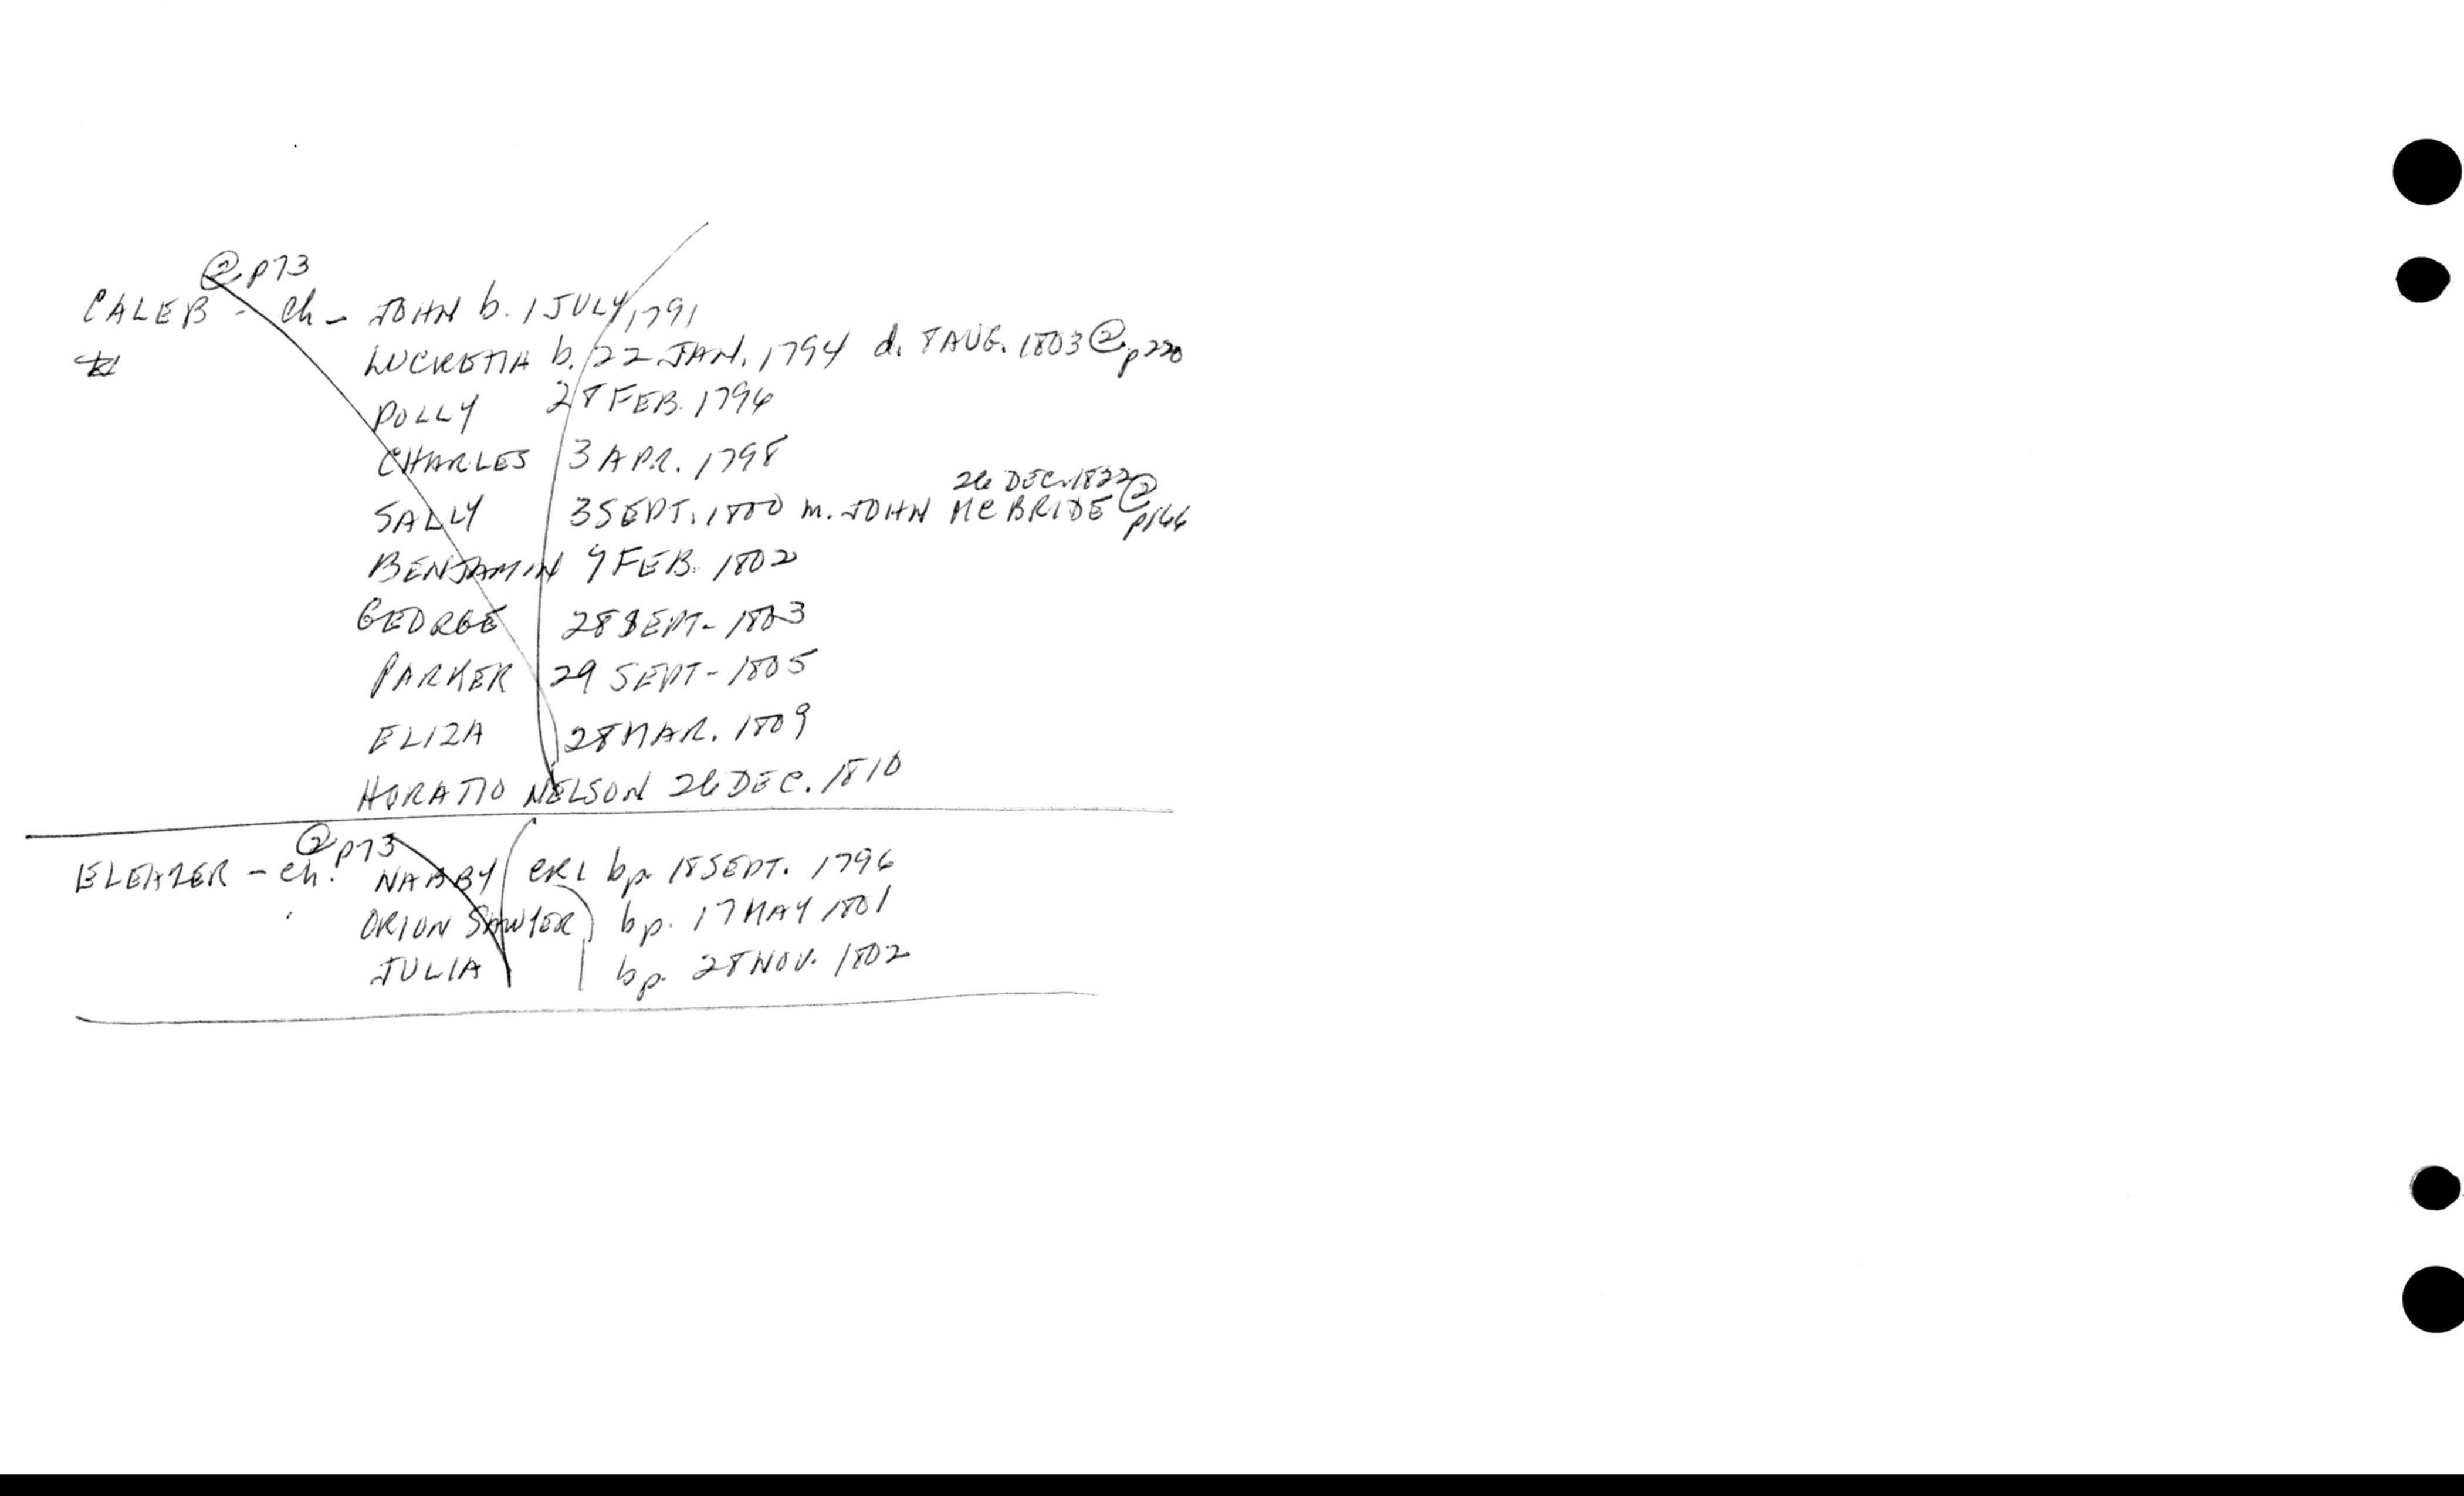 ② p73
CALEB - Ch - JOHN b. 1 JULY 1791
LUCRETIA b. 22 JAN. 1794 d. 8 AUG. 1803 ② p220
POLLY 28 FEB. 1796
CHARLES 3 APR. 1798
26 DEC. 1822 ②
SALLY 3 SEPT. 1800 m. JOHN McBRIDE p166
BENJAMIN 9 FEB. 1802
GEORGE 28 SEPT - 1803
PARKER 29 SEPT - 1805
ELIZA 28 MAR. 1809
HORATIO NELSON 26 DEC. 1810
② p73
ELEAZER - Ch: NABBY CR1 bp. 18 SEPT. 1796
ORION SAWYER bp. 17 MAY 1801
JULIA bp. 28 NOV. 1802